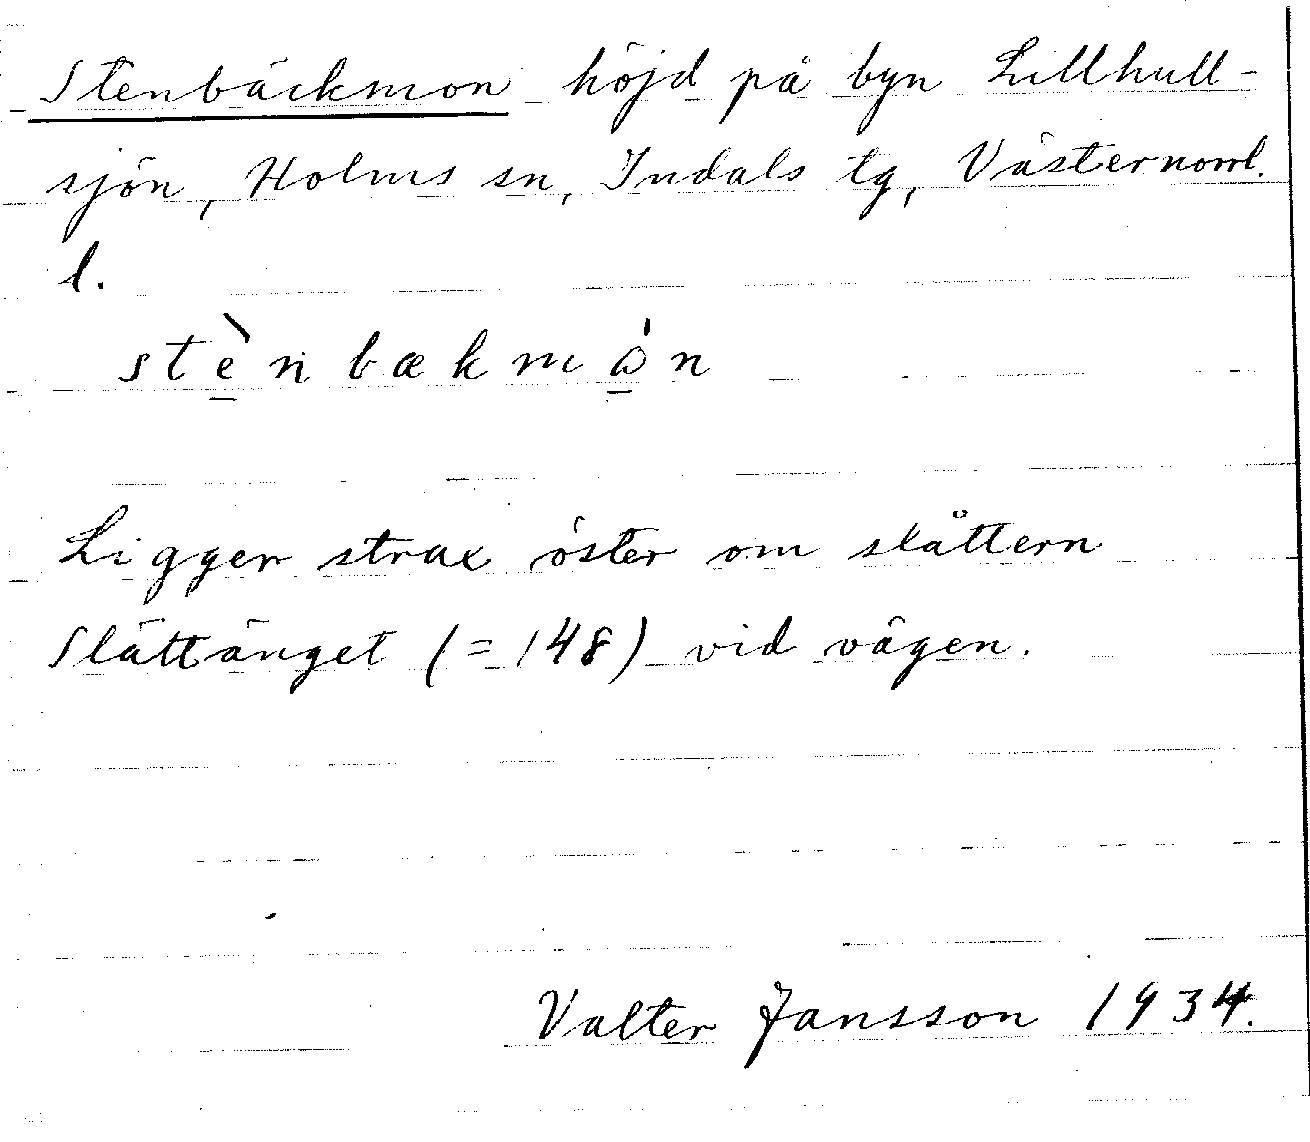 Stenbäckmon höjd på byn Lillhull-
sjön, Holms sn, Indals tg, Västernorrl.
l.
stènbækmón
Ligger strax öster om slåttern
Slättänget (=148) vid vägen.
Valter Jansson 1934.